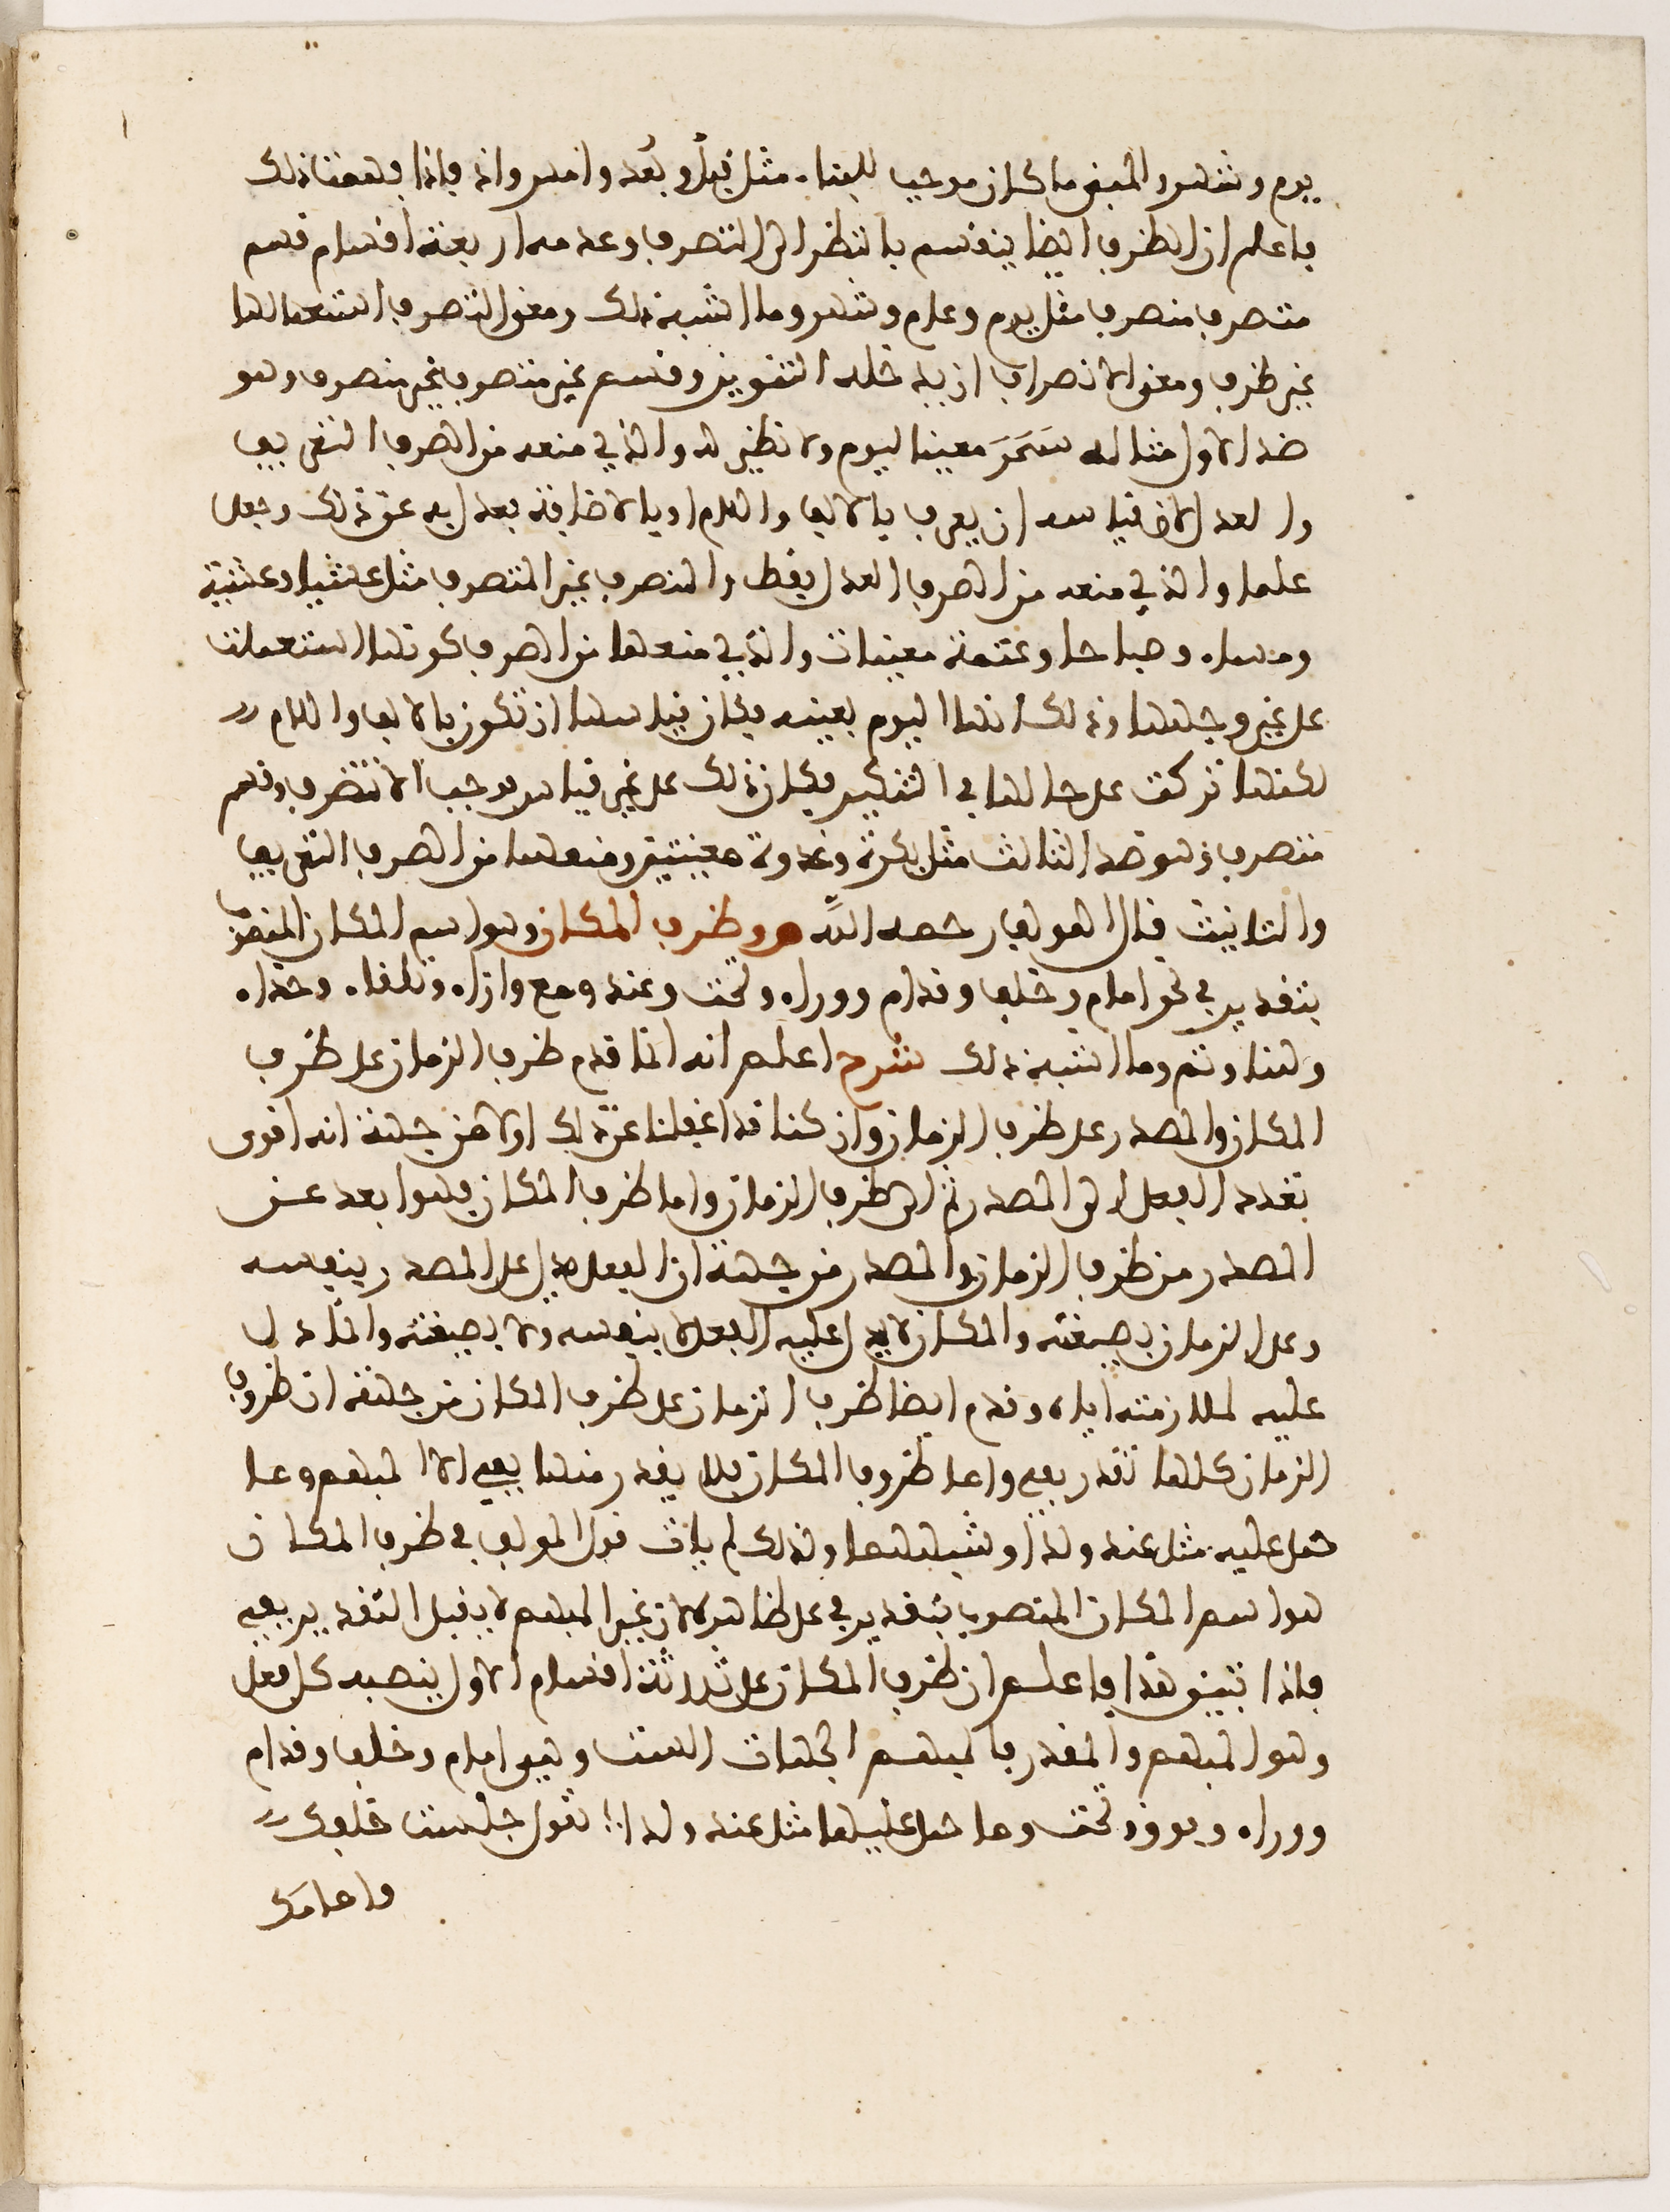 يوم وشهر والمبني ما كان موجب للبناء مثل قبلُ وبعد وامس واذ فاذا فهمت ذلك
فاعلم ان الظرف ايضا ينقسم بالنظر الى التصرف وعدمه اربعة اقسام قسم
متصرف منصرف مثل يوم وعام وشهر وما اشبه ذلك ومعنى التصرف استعمالها
غير ظرف ومعنى الانصراف ان يدخله التنوين وقسم غير متصرف غير منصرف وهو
ضد الاول مثاله سَحَرَ معينا ليوم ولا نظير له والذي منعه من الصرف التعريف
والعدل لان قياسه ان يعرف بالالف واللام او بالاضافة فعدل به عن ذلك وجعل
علما والذي منعه من الصرف العدل فقط والمنصرف غير المتصرف مثل عشيا وعشية
ومساء وصباحا وعتمة معينات والذي منعها من الصرف كونها استعملت
على غير وجهها وذلك انها اليوم بعينه فكان قياسها ان تكون بالالف واللام
لكنها تركت على حالها في التنكير فكان ذلك على غير قياس يوجب الا تتصرف وقسم
متصرف وهو ضد الثالث مثل بكرة وغدوة معينتين ومنعهما من الصرف التعريف
والتانيث قال المولف رحمه الله وظرف المكان وهو اسم المكان المنصوب
بتقدير في نحو امام وخلف وقدام ووراء وتحت وعند ومع وازاء وتلقاء وحذاء
وهنا وثم وما اشبه ذلك شرح اعلم انه انما قدم ظرف الزمان على ظرف
المكان والمصدر على ظرف الزمان وان كنا قد اغفلنا عن ذلك اولا من جهة انه اقوى
تعدد الفعل الى المصدر ثم الى ظرف الزمان واما ظرف المكان فهو ابعد عن
المصدر من ظرف الزمان والمصدر من جهة ان الفعل يدل على المصدر بنفسه
وعلى الزمان بصيغته والمكان لا يدل عليه الفعل لا بنفسه ولا بصيغته وانما دل
عليه لملازمته اياه وقدم ايضا ظرف الزمان على ظرف المكان من جهة ان ظروف
الزمان كلها تقدر بفي واما ظروف المكان فلا يقدر منها بفي الا المبهم وما
حمل عليه مثل عند ولدا وشبههما ولذلك لم يات قول المولف في ظرف المكان
هو اسم المكان المنصوب بتقدير في على ظاهره لان غير المبهم لا يقبل التقدير بفي
فاذا تبين هذا فاعلم ان ظرف المكان على ثلاثة اقسام الاول ينصبه كل فعل
وهو المبهم والمقدر فالمبهم الجهات الست وهي امام وخلف وقدام
ووراء وفوق وتحت وما حمل عليها مثل عند ولدا تقول جلست خلفك
وامامك